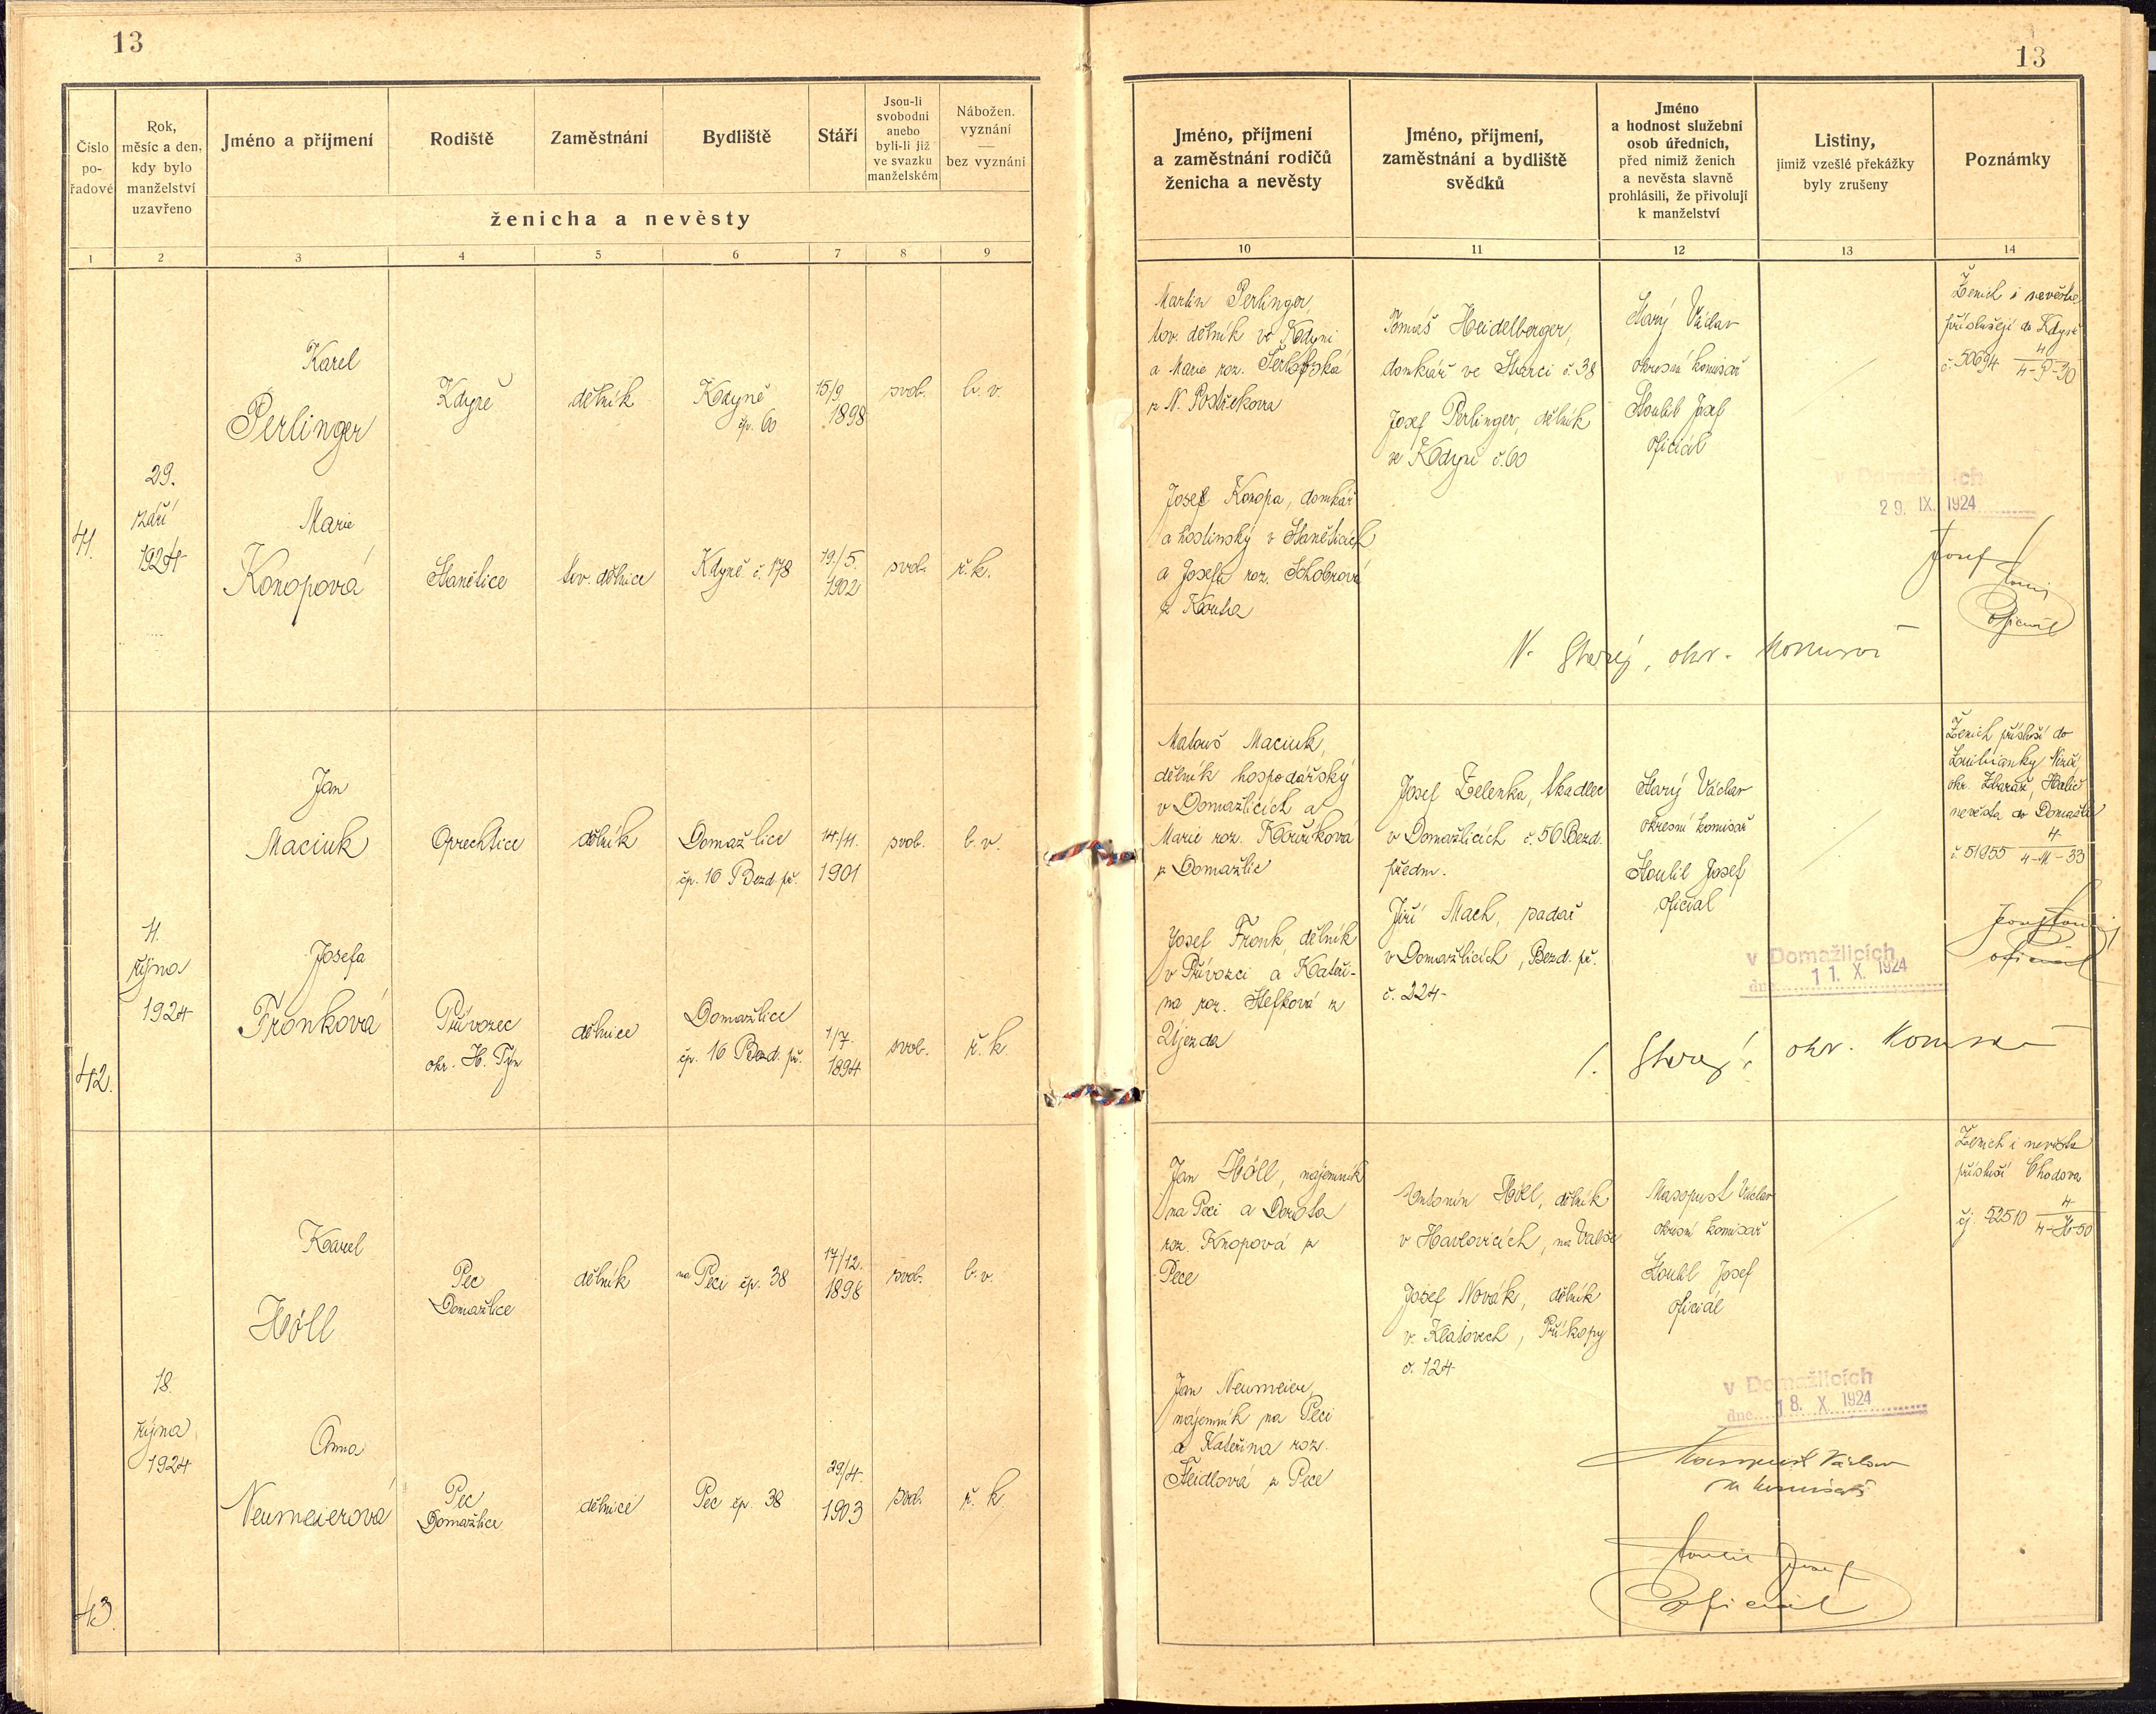 13
Číslo
po-
řadové
Rok,
měsíc a den,
kdy bylo
manželství
uzavřeno
Jméno a příjmení
Rodiště
Zaměstnání
Bydliště
Stáří
Jsou-li
svobodni
anebo
byli-li již
ve svazku
manželském
Nábožen.
vyznání
—
bez vyznání
ženicha a nevěsty
1 2 3 4 5 6 7 8 9
41.
29.
září
1924
Karel
Perlinger
Kdyně
dělník
Kdyně
čp. 60
15/9
1898
svob.
b. v.
Marie
Konopová
Stanětice
tov. dělnice
Kdyně č. 178
19./5.
1902
svob.
ř. k.
42.
11.
října
1924
Jan
Maciuk
Oprechtice
dělník
Domažlice
čp. 16 Bezd. př.
14./11.
1901
svob.
b. v.
Josefa
Fronková
Přívozec
okr. H. Týn
dělnice
Domažlice
čp. 16 Bezd. př.
1/7.
1894
svob.
ř. k.
43.
18.
října
1924
Karel
Höll
Pec
Domažlice
dělník
na Peci čp. 38
17/12.
1898
svob.
b. v.
Anna
Neumeierová
Pec
Domažlice
dělnice
Pec čp. 38
29/4.
1903
svob.
ř. k.
13
Jméno, příjmení
a zaměstnání rodičů
ženicha a nevěsty
Jméno, příjmení,
zaměstnání a bydliště
svědků
Jméno
a hodnost služební
osob úředních,
před nimiž ženich
a nevěsta slavně
prohlásili, že přivolují
k manželství
Listiny,
jimiž vzešlé překážky
byly zrušeny
Poznámky
10 11 12 13 14
Martin Perlinger,
tov. dělník ve Kdyni
a Marie roz.
z N. Postřekova
Josef Konopa, domkář
a hostinský v Staněticích
a Josefa roz. Schobrová
z Kouta
Tomáš Heidelberger,
domkář ve Starci č. 38
Josef Perlinger, dělník
ve Kdyni č. 60
Starý Václav
okresní komisař
Stoulil Josef
oficiál
Ženich i nevěsta
příslušejí do Kdyně
č. 50694 4/4-P-30
v Domažlicích
29. IX. 1924
Josef
Oficiál
V. Starý, okr. komisař
Matouš Maciuk,
dělník hospodářský
v Domažlicích a
Marie roz. Kouříková
z Domažlic
Josef Fronk, dělník
v Přívozci a Kateři-
na roz. Stefková z
Újezda
Josef Zelenka, tkadlec
v Domažlicích č. 56 Bezd.
předm.
Jiří Mach, sadař
v Domažlicích, Bezd. př.
č. 224-
Starý Václav
okresní komisař
Stoulil Josef
oficiál
Ženich přísluší do
okr. Zbaraž, Halič
nevěsta do Domažlic
č. 51955 4/4-M-33
v Domažlicích
dne 11. X. 1924
oficiál
Starý, okr. komisař
Jan Höll, nájemník
na Peci a Dorota
roz. Knopová z
Pece
Jan Neumeier,
nájemník na Peci
a Kateřina roz.
Seidlová z Pece
Antonín Höll, dělník
v Havlovicích, na Valše
Josef Novák, dělník
v Klatovech, Příkopy
č. 124
Masopust Václav
okresní komisař
Stoulil Josef
oficiál
Ženich i nevěsta
přísluší Chodova
čj. 52510 4/4-H-50
v Domažlicích
dne 18. X. 1924
Masopust Václav
ok. komisař
Stoulil Josef
oficiál